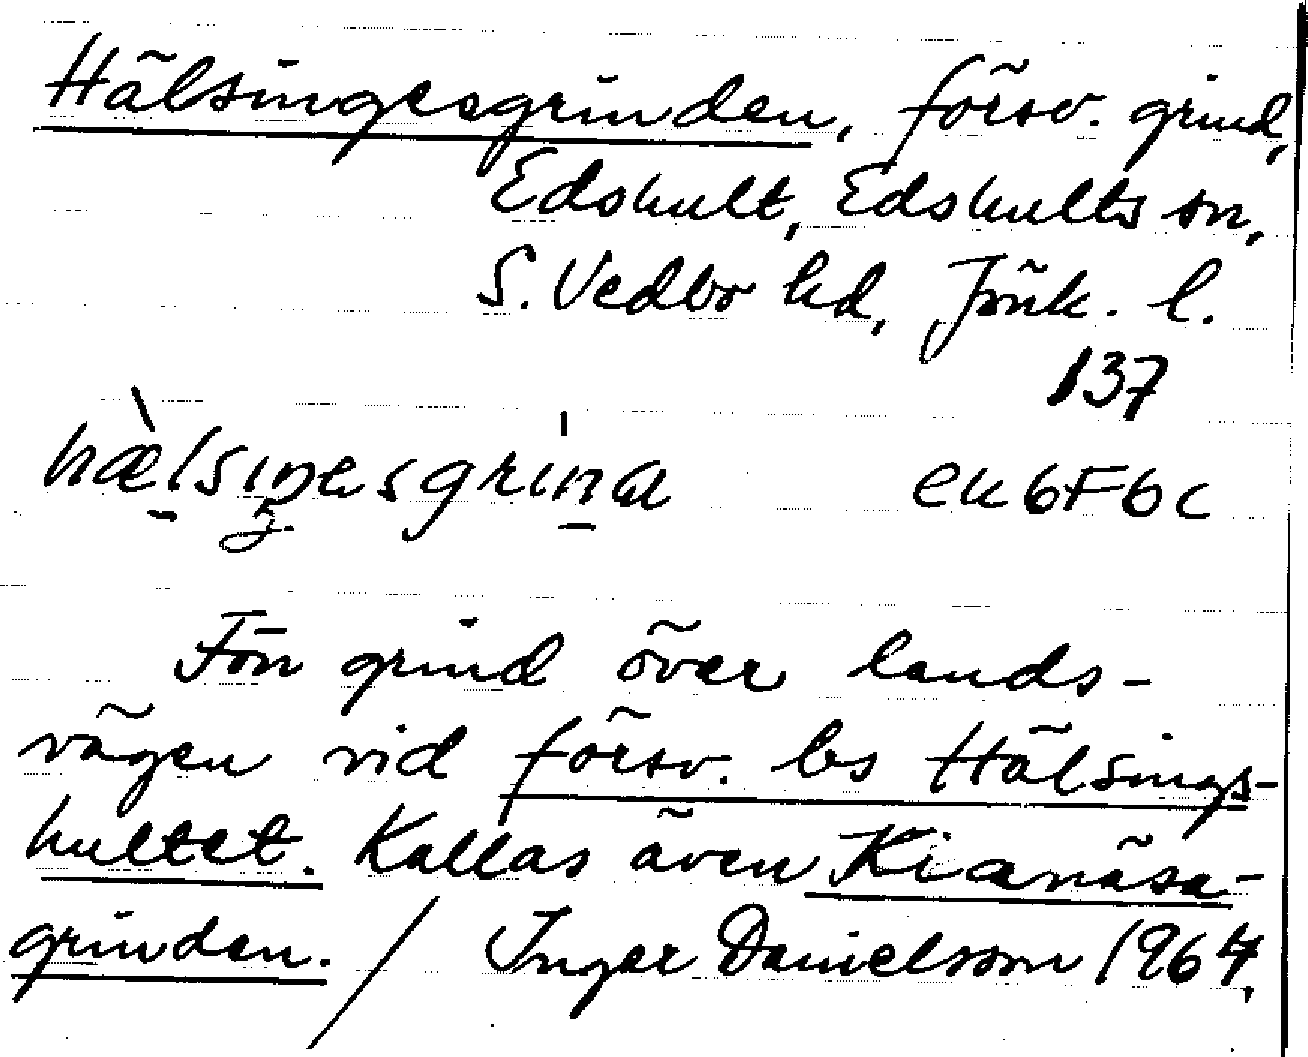 Hälsingesgrinden, försv. grind,
Edshult, Edshults sn,
S. Vedbo hd, Jönk. l.
137
hæ̀lsiŋəsgrina ek6F6c
Fön grind över lands-
vägen vid försv. bs Hälsings-
hultet. Kallas även Kianäsa-
grinden. / Inger Danielsson 1964.